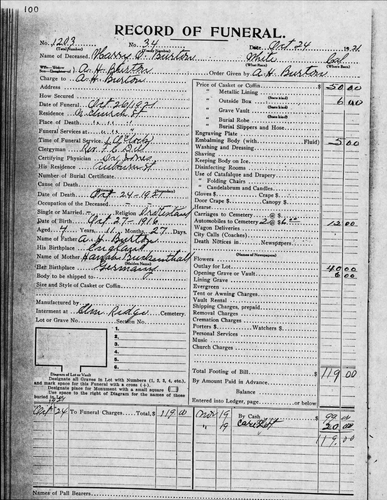 100
RECORD OF FUNERAL.
No. 1203 No. 34 Date Oct 24 1921
Name of Deceased Harry O. Burton White Cal
A. H. Burton Order Given by A. H. Burton
Charge to A. H. Burton
Address
How Secured
Date of Funeral Oct 26 1921
Residence Church St
Place of Death
Funeral Services at
Time of Funeral Service 2 O'Clock
Clergyman Rev.
Certifying Physician Dr Jones
His Residence Auburn St
Number of Burial Certificate
Cause of Death
Date of Death Oct 24 - 1921
Occupation of the Deceased
Single or Married Religion Protestant
Date of Birth Oct 27 - 1916
Aged 4 Years 11 Months 27 Days.
Name of Father A. H. Burton
His Birthplace England
Name of Mother Hannah
Her Birthplace Germany
Body to be shipped to
Size and Style of Casket or Coffin
Manufactured by
Interment at Elm Ridge Cemetery.
Lot or Grave No. Section No.
1.
2.
3.
4.
5.
6.
Diagram of Lot or Vault
Designate all Graves in Lot with Numbers (1, 2, 3, 4, etc.),
and mark space for this Funeral with a cross (×).
Designate place for Monument with a small square
Use space to the right of Diagram for the names of those
buried in lot.
Price of Casket or Coffin $ 50 00
" Metallic Lining
" Outside Box 6 00
" Grave Vault
" Burial Robe
" Burial Slippers and Hose
Engraving Plate
Embalming Body (with Fluid) $ 5 00
Washing and Dressing
Shaving
Keeping Body on Ice
Disinfecting Rooms
Use of Catafalque and Drapery
" Folding Chairs
" Candelabrum and Candles
Gloves $ Crape $
Door Crape $ Candy $
Hearse
Carriages to Cemetery @ $
Automobiles to Cemetery 2 @ $6.00 12.00
Wagon Deliveries
City Calls (Coaches)
Death Notices in Newspapers.
(Names of Newspapers)
Flowers
Outlay for Lot 40 00
Opening Grave or Vault 6 00
Evergreen
Tent or Awning Charges
Vault Rental
Shipping Charges, prepaid
Removal Charges
Cremation Charges
Porters $ Watchers $
Personal Services
Music
Church Charges
Total Footing of Bill $ 119 00
By Amount Paid in Advance
Balance
Entered into Ledger, page or below.
Oct 24 To Funeral Charges, Total, $ 119 00
Nov 19 By Cash 99 00
" 19 20 00
119.00
Names of Pall Bearers